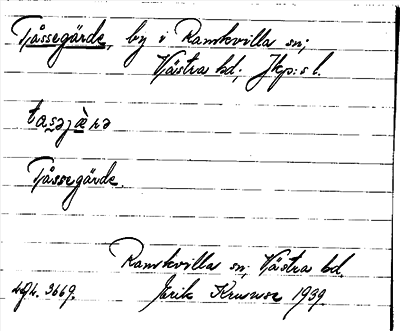 Tåssegärde, by i Ramkvilla sn;
Västra hd; Jkp:s l.
tasəjæ̀rə
Tåssegärde.
Ramkvilla sn; Västra hd.
3669.
Kruuse 1939